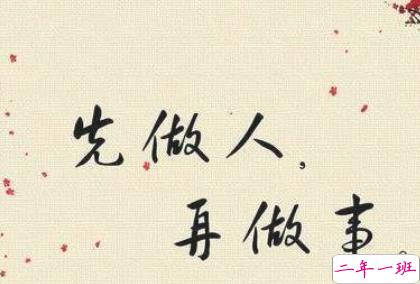 先做人，
再做事。
二年一班